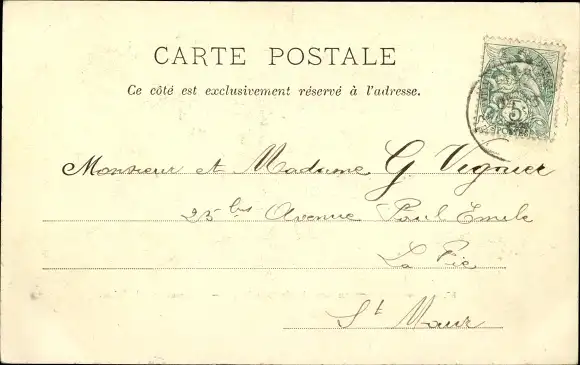 CARTE POSTALE
Ce côté est exclusivement réservé à l'adresse.
5
POSTES
Monsieur et Madame G Vignier
25 bis Avenue Paul Emile
La Pie
St Maur